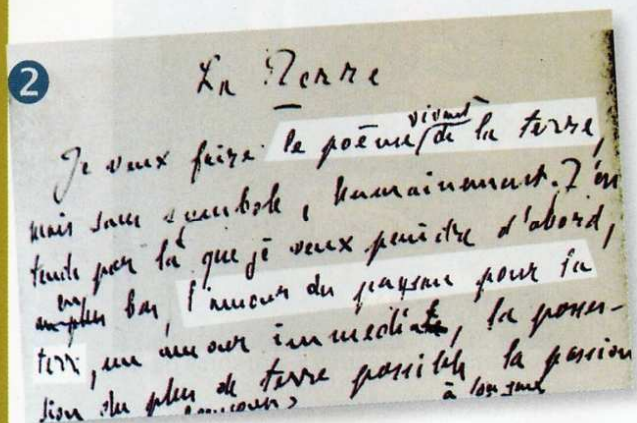 2
La Terre
vivant
Je veux faire le poème de la terre,
mais sans symbole, humainement. J'en
tends par là que je veux peindre d'abord,
en
bas, l'amour du paysan pour la
terre, un amour immédiat, la posses-
sion du plus de terre possible, la passion